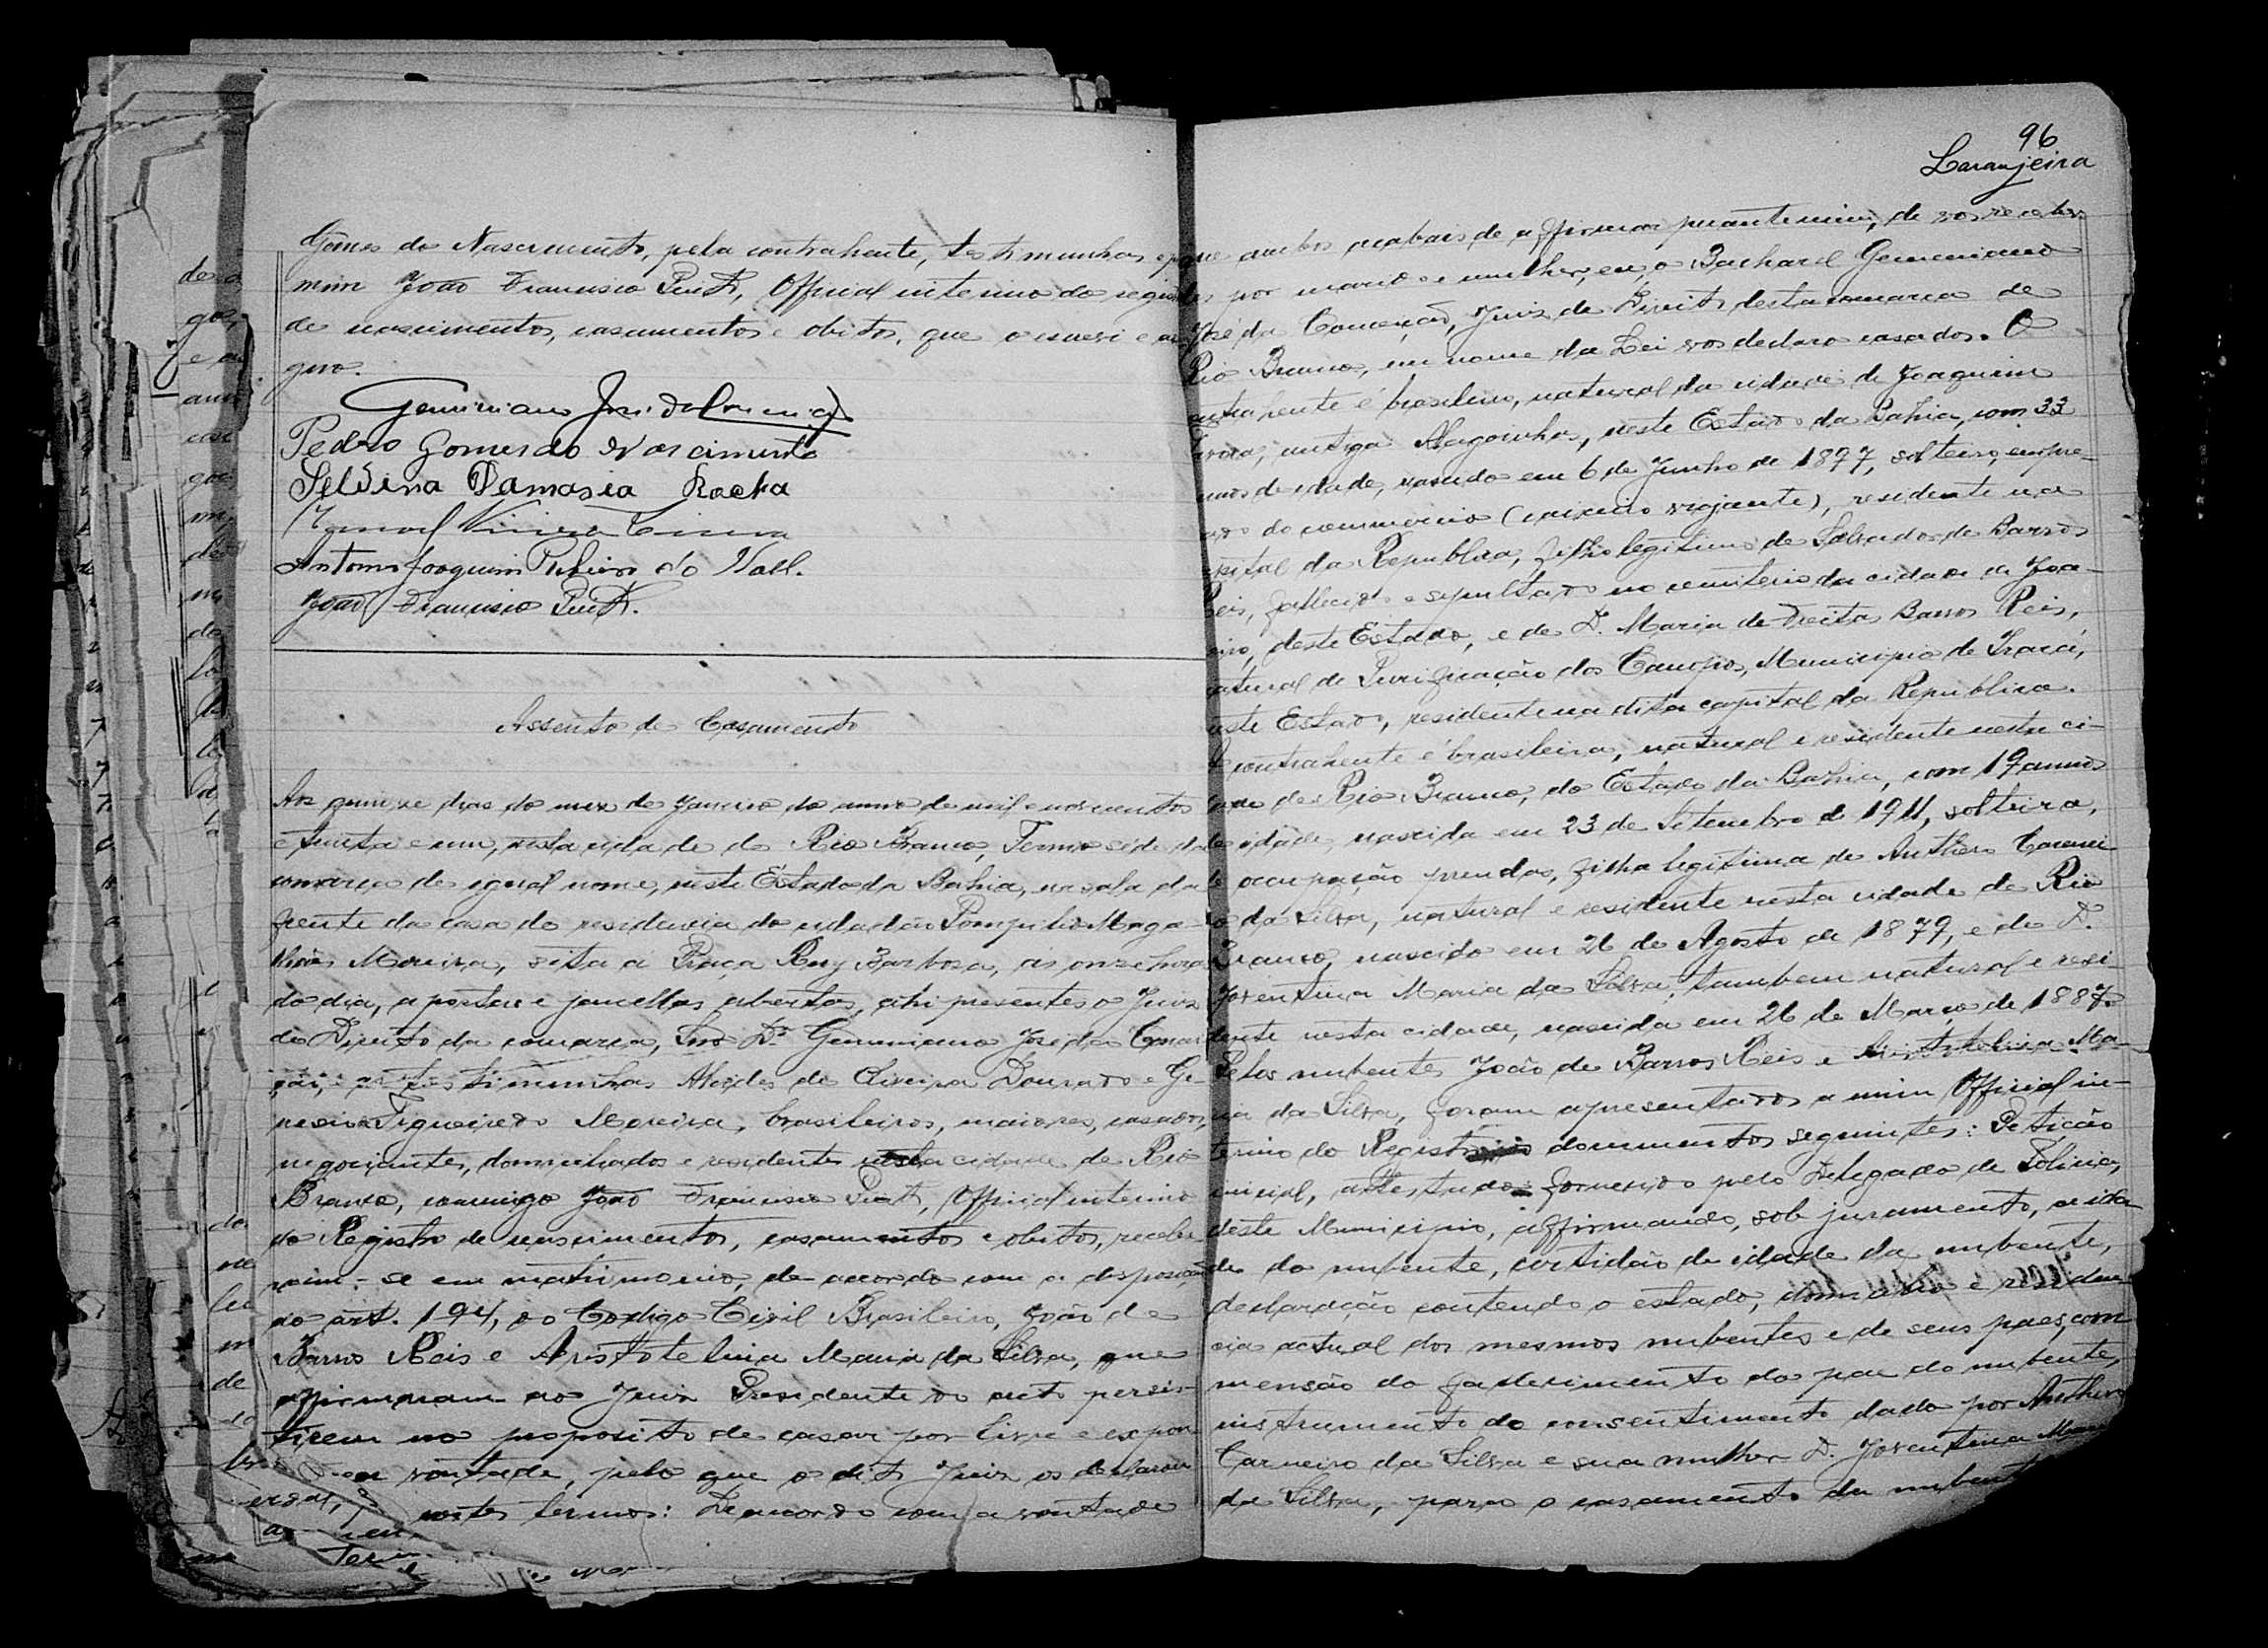 Gomes do Nascimento, pela contrahente, testimunhas e por
mim João Francisco , Official interino do registro
de nascimentos, casamentos e obitos, que o escrevi e assi-
gno.
Geminiano José da Conceição
Pedro Gomes do Nascimento
Selvina Damasia Rocha
Manoel
Antonio Joaquim Ribeiro do Vall.
João Francisco
Assento de Casamento
Aos quinze dias do mez de Janeiro do anno de mil e novecentos
e trinta e um, nesta cidade do Rio Branco, Termo séde da
comarca de igual nome, neste Estado da Bahia, na sala da
frente da casa de residencia do cidadão Pompilio Maga-
lhães Moreira, sita a Praça Ruy Barbosa, ás onze horas
do dia, a portas e janellas abertas, ahi presentes o Juiz
de Direito da comarca, Dr. Geminiano José da Concei-
ção, e as testimunhas Alcides de Oliveira Dourado e Ge-
nesio Figueiredo Moreira, brasileiros, maiores, casados,
negociantes, domiciliados e residentes nesta cidade de Rio
Branco, commigo João Francisco , Official interino
do Registro de nascimentos, casamentos e obitos, recebe-
ram-se em matrimonio, de accordo com a disposição
do art. 194, do Codigo Civil Brasileiro, João de
Barros Reis e Aristotelina Maria da Silva, que
affirmaram ao Juiz Presidente do acto persis-
tirem no proposito de casar por livre e espon
vontade, pelo que o dito Juiz os declarou
nestes termos: De accordo com a vontade
96
Laranjeira
que ambos acabais de affirmar perante mim, de vos receber
por marido e mulher, eu, o Bacharel Geminiano
José da Conceição, Juiz de Direito desta comarca de
Rio Branco, em nome da Lei vos declaro casados. O
contrahente é brasileiro, natural da cidade de Joaquim
Tavora, antiga Alagoinhas, neste Estado da Bahia, com 33
annos de idade, nascido em 6 de Junho de 1897, solteiro, empre-
gado do commercio (caixeiro viajante), residente na
capital da Republica, filho legitimo de Salvador de Barros
Reis, fallecido e sepultado no cemiterio da cidade de Joa-
deste Estado, e de D. Maria de Freitas Barros Reis,
natural de Purificação dos Campos, Municipio de Irará,
neste Estado, residente na dita capital da Republica.
A contrahente é brasileira, natural e residente nesta ci-
dade de Rio Branco, do Estado da Bahia, com 19 annos
de idade, nascida em 23 de Setembro de 1911, solteira,
de occupação prendas, filha legitima de Anthero Carnei-
ro da Silva, natural e residente nesta cidade de Rio
Branco, nascido em 26 de Agosto de 1879, e de D.
Joventina Maria da Silva, tambem natural e resi-
dente nesta cidade, nascida em 26 de Março de 1887.
Pelos nubentes João de Barros Reis e Aristotelina Ma-
ria da Silva, foram apresentados a mim Official in-
terino do Registro documentos seguintes: Petição
inicial, attestado fornecido pelo Delegado de Policia,
deste Municipio, affirmando, sob juramento, a ida-
de do nubente, certidão de idade da nubente,
declaração contendo o estado, domicilio e residen-
cia actual dos mesmos nubentes e de seus paes, com
mensão do fallecimento do pae do nubente,
instrumento do consentimento dado por Anthero
Carneiro da Silva e sua mulher D. Joventina Maria
da Silva, para o casamento da nubente